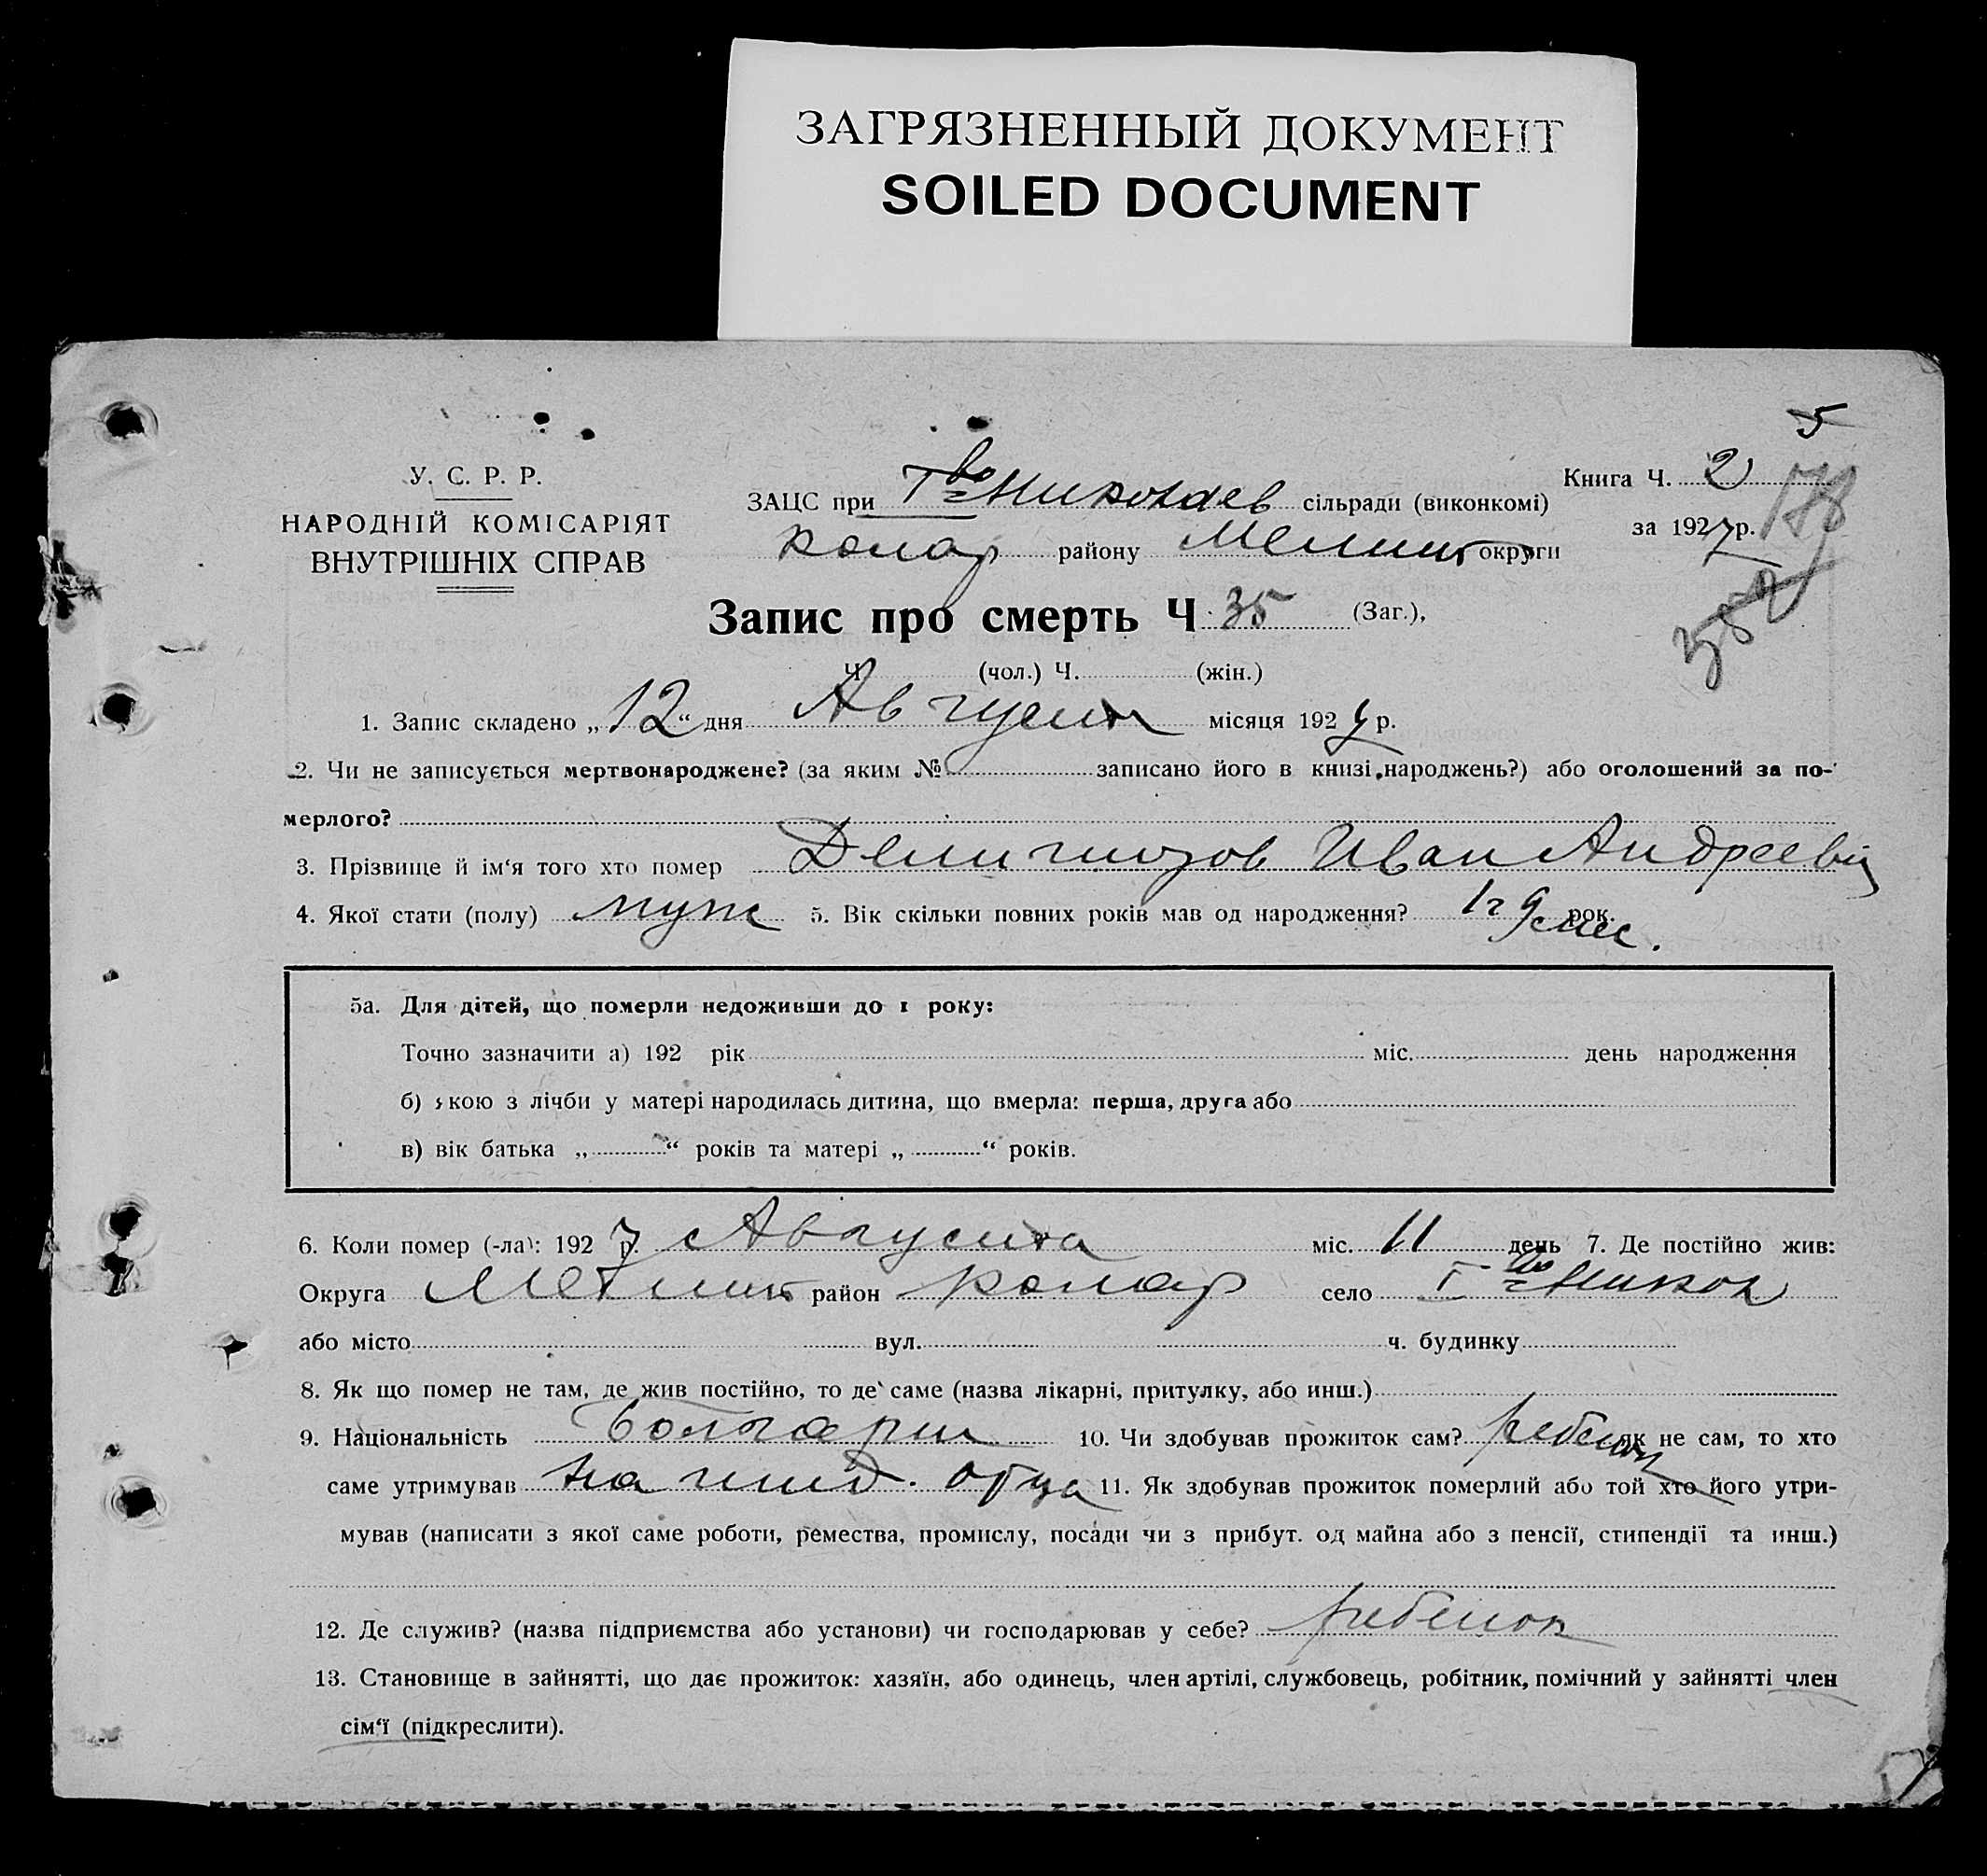 ЗАГРЯЗНЕННЫЙ ДОКУМЕНТ
SOILED DOCUMENT
5
У. С. Р. Р.
НАРОДНІЙ КОМІСАРІЯТ
ВНУТРІШНІХ СПРАВ
ЗАЦС при Тво Николаев сільради (виконкомі)
Колар району Мелит округи
Книга Ч. 2
за 1927 р.
Запис про смерть Ч. 35 (Заг.),
Ч. (чол.) Ч. (жін.)
1. Запис складено „12“ дня Августа місяця 1927 р.
2. Чи не записується мертвонароджене? (за яким № записано його в книзі народжень?) або оголошений за по-
мерлого?
3. Прізвище й ім‘я того хто помер Делигиозов Иван Андреевич
4. Якої стати (полу) муж 5. Вік скільки повних років мав од народження? 1 г 9 мес. рок.
5а. Для дітей, що померли недоживши до 1 року:
Точно зазначити а) 192 рік міс. день народження
б) якою з лічби у матері народилась дитина, що вмерла: перша, друга або
в) вік батька „ “ років та матері „ “ років.
6. Коли помер (-ла): 1927 р. Августа міс. 11 день 7. Де постійно жив:
Округа Мелит район Колар село Тво Никол
або місто вул. ч. будинку
8. Як що помер не там, де жив постійно, то де саме (назва лікарні, притулку, або инш.)
9. Національність Болгарин 10. Чи здобував прожиток сам? ребенок як не сам, то хто
саме утримував На ижд. отца 11. Як здобував прожиток померлий або той хто його утри-
мував (написати з якої саме роботи, ремества, промислу, посади чи з прибут. од майна або з пенсії, стипендії та инш.)
12. Де служив? (назва підприємства або установи) чи господарював у себе? ребенок
13. Становище в зайнятті, що дає прожиток: хазяїн, або одинець, член артілі, службовець, робітник, помічний у зайнятті член
сім‘ї (підкреслити).